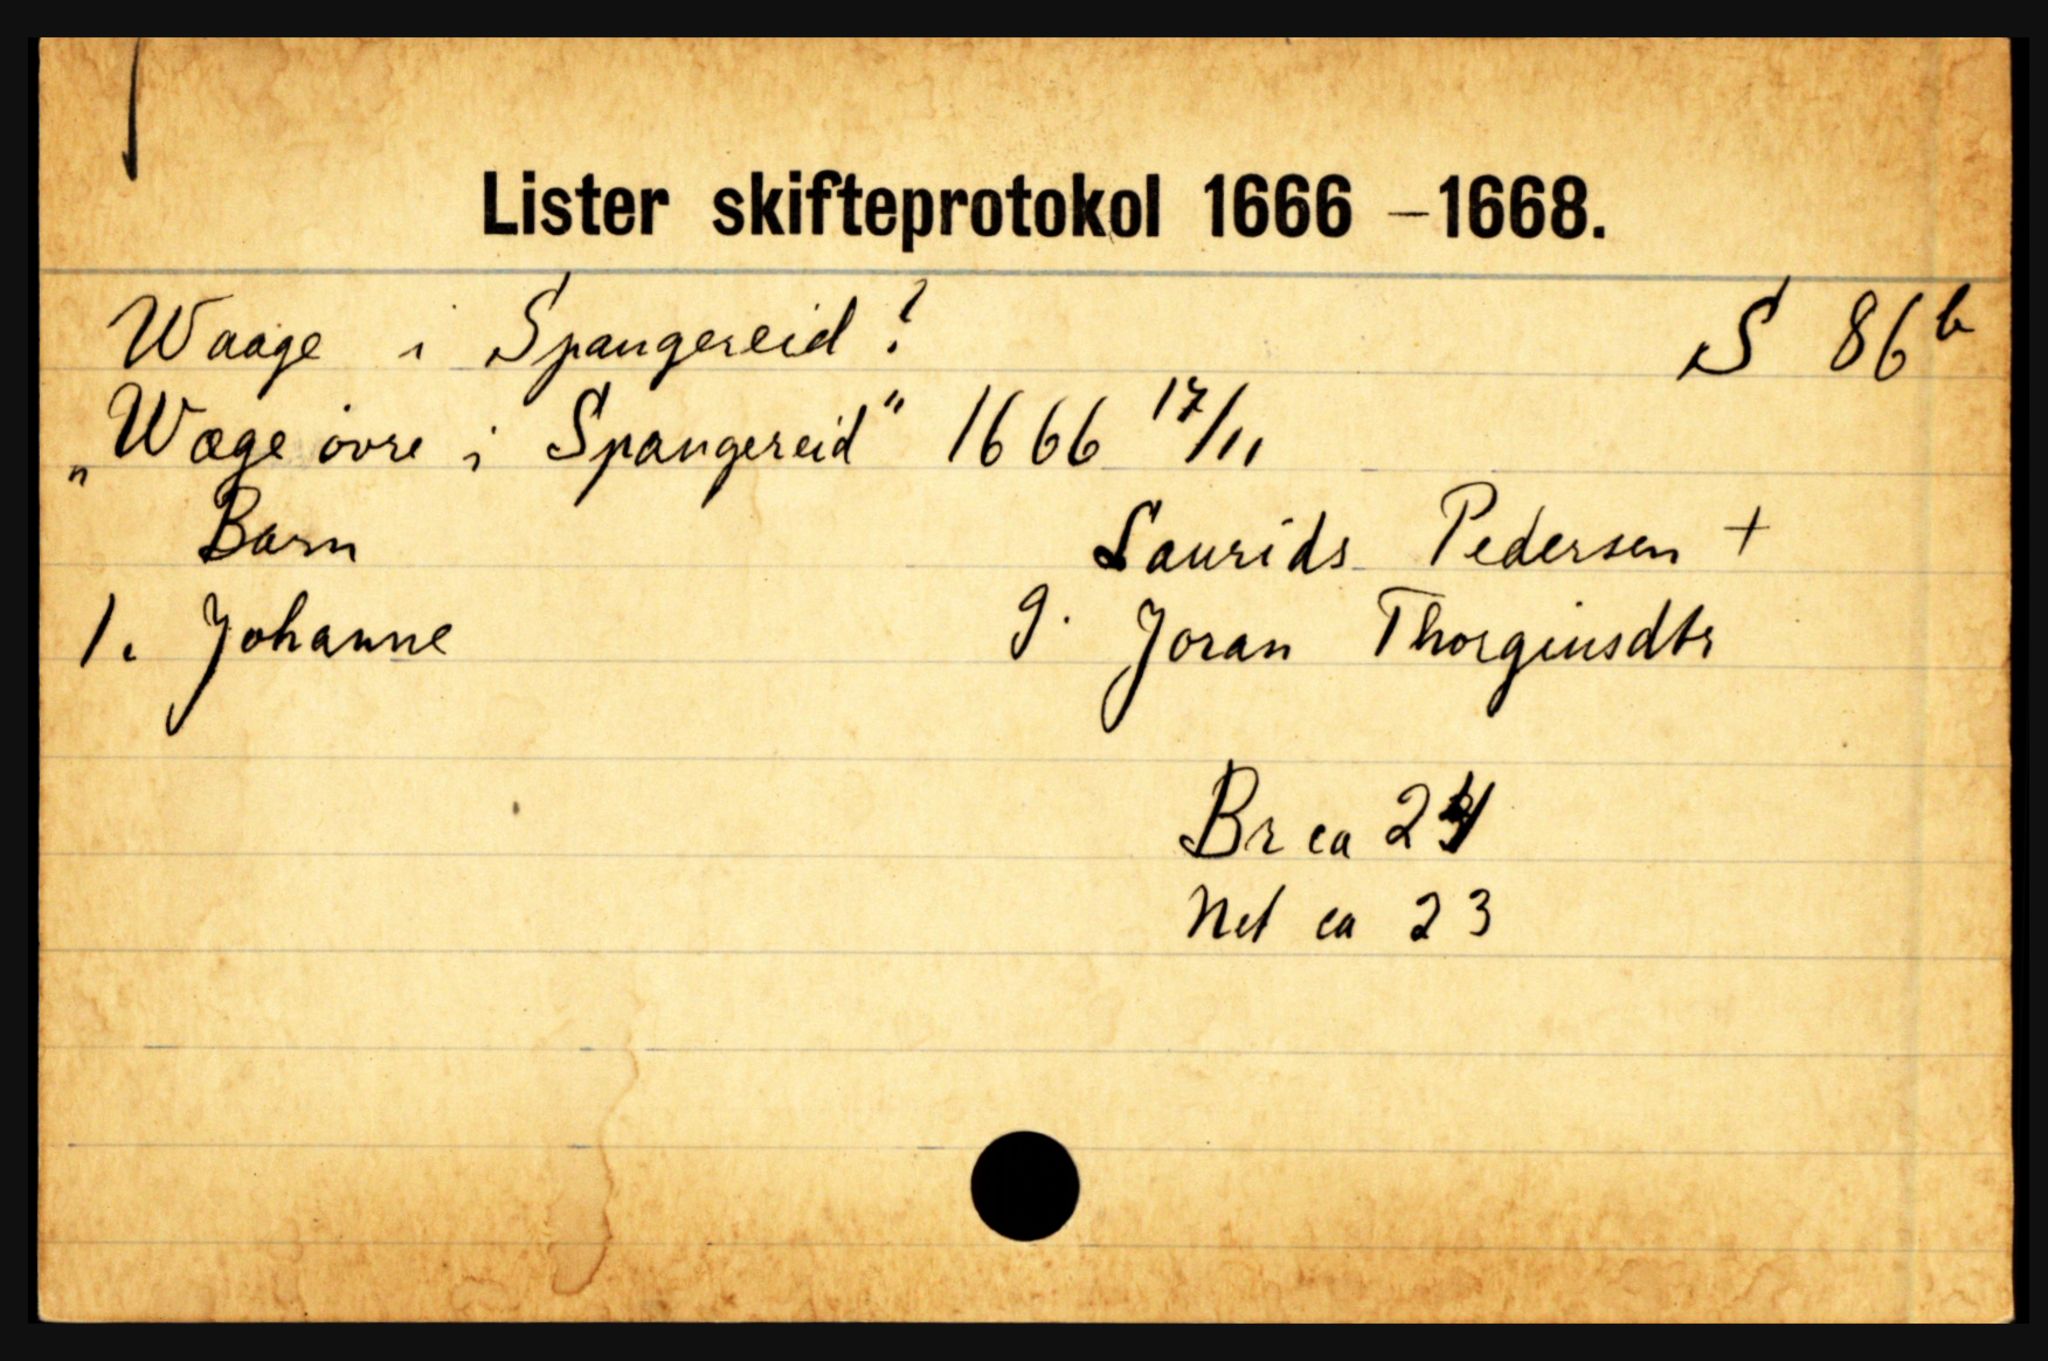 Lister skifteprotokol 1666 – 1668.
Waage i Spangereid? S 86 b
„Wæge övre i Spangereid" 1666 17/11
Barn Laurids Pedersen +
1. Johanne g. Joran Thorginsdtr
Br ca 24
Net ca 23